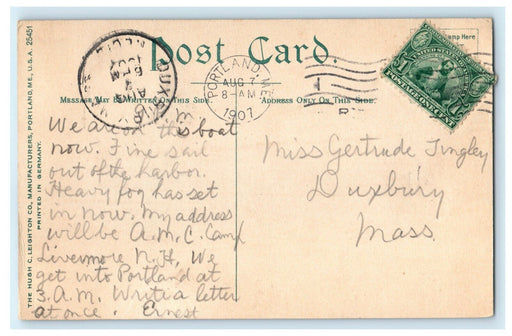 Post Card.
THE HUGH C. LEIGHTON CO., MANUFACTURERS, PORTLAND, ME., U.S.A. 25451
PRINTED IN GERMANY.
Message May be Written on This Side
Address Only on This Side.
Stamp Here
DUXBURY
PORTLAND, ME.
AUG 7
8-AM
1907
1
POSTAGE ONE CENT
We are on this boat
now. Fine sail
out of the harbor.
Heavy fog has set
in now. My address
will be A.M.C. Camp
Livermore N.H. We
get into Portland at
3.A.M. Write a letter
at once. Ernest
Miss Gertrude Tingley
Duxbury
Mass.